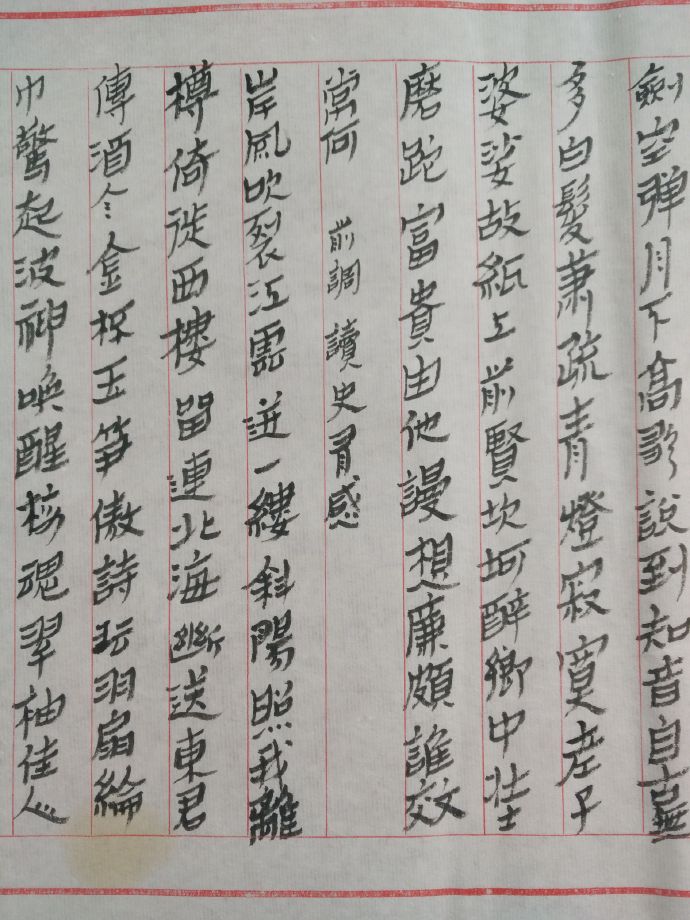 劍空彈月下高歌說到知音自古無
多白髮蕭疏青燈寂寞老子
婆娑故紙上前賢坎坷醉鄉中壯士
磨跎富貴由他謾想廉頗誰效
常何 前調 讀史有感
岸風吹裂江雲迸一縷斜陽照我離
樽倚徙西樓留連北海斷送東君
傳酒令金杯玉笋傲詩壇羽扇綸
巾驚起波神喚醒梅魂翠袖佳人